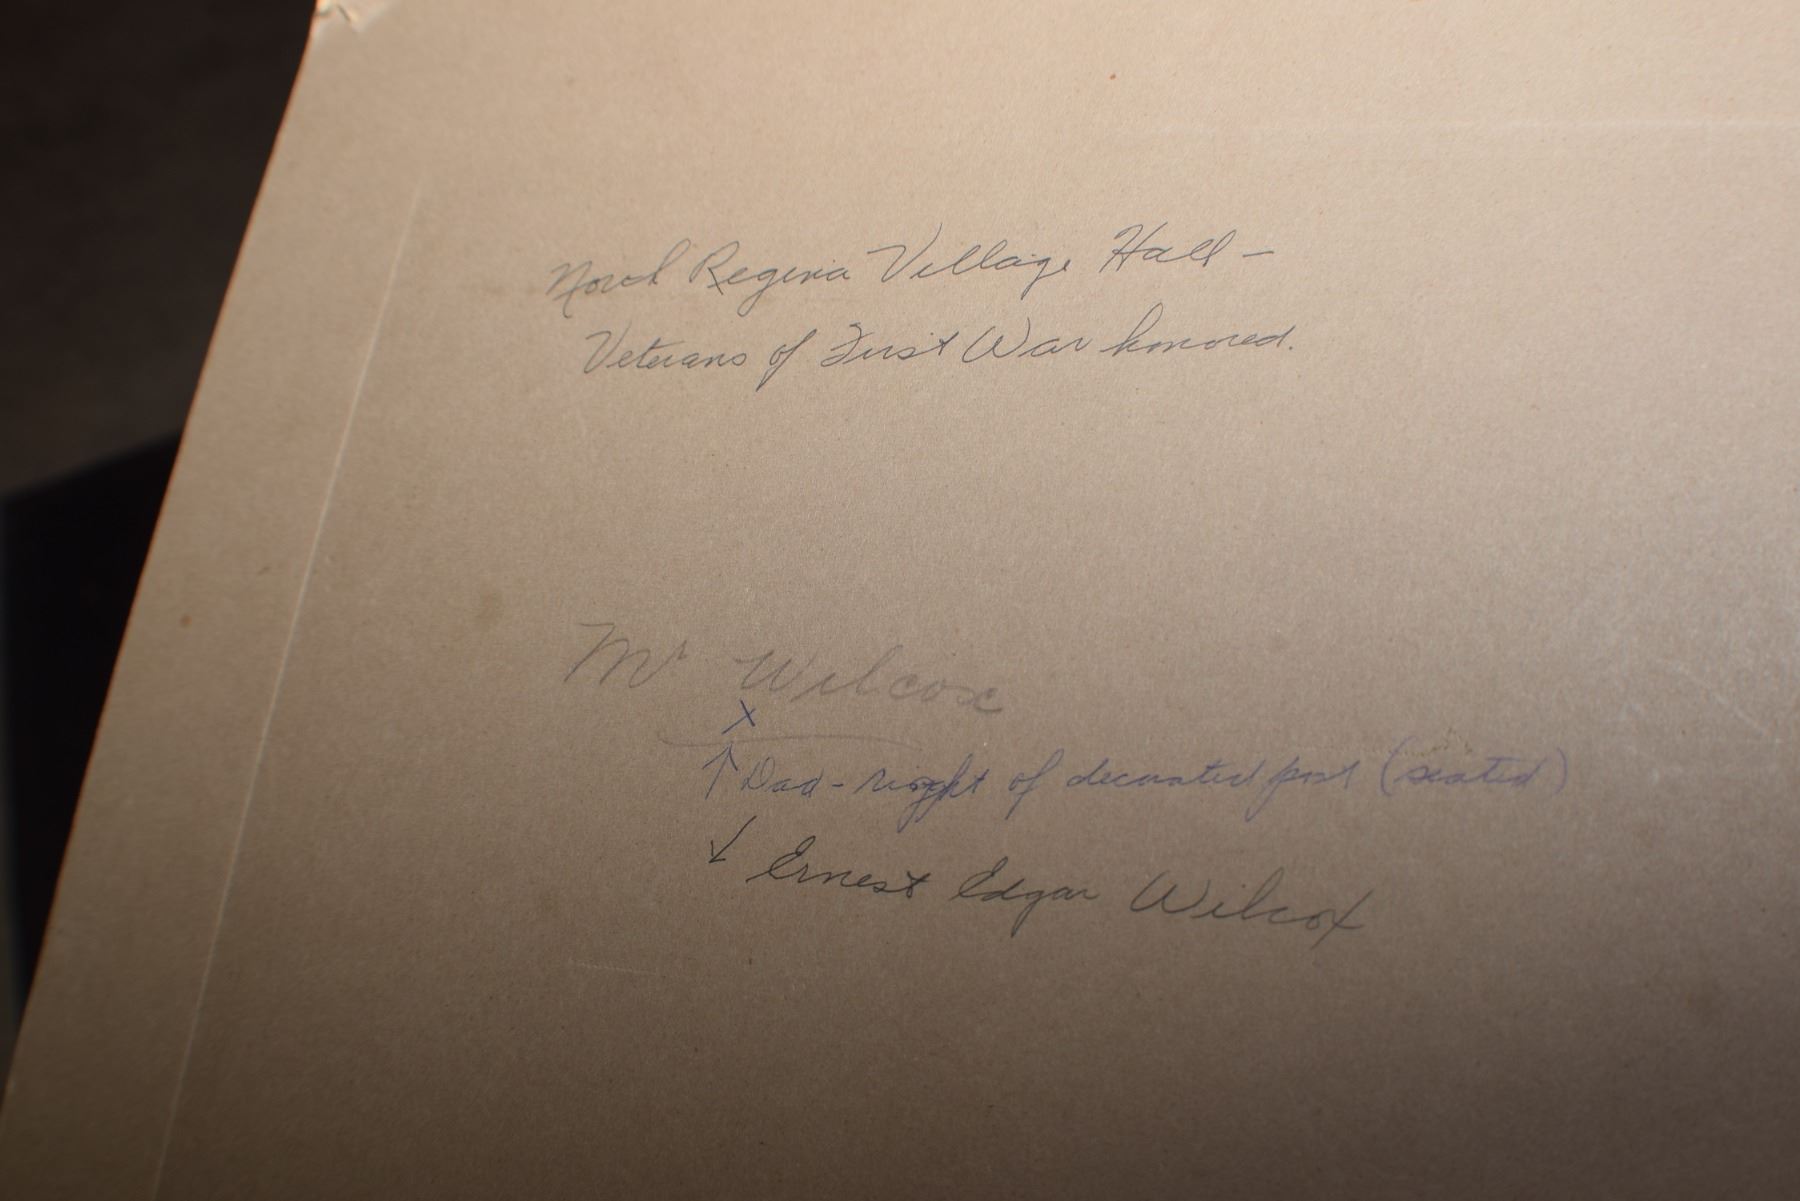 North Regina Village Hall -
Veterans of First War honored.
Mr Wilcox
x
↑ Dad - right of decorated post (seated)
↓ Ernest Edgar Wilcox